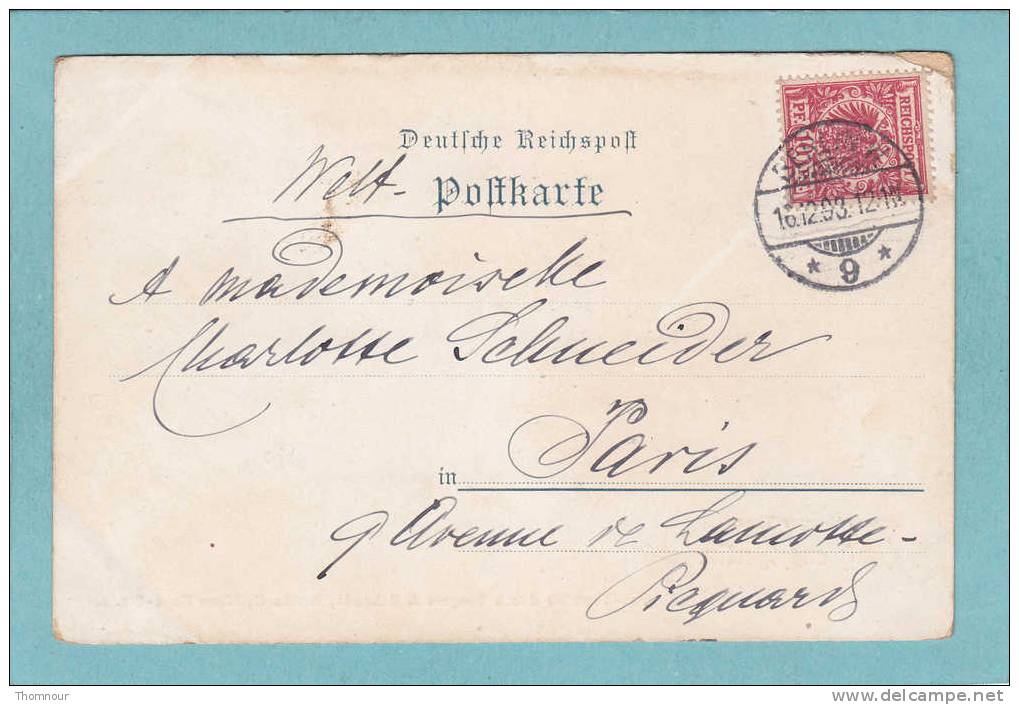 Deutsche Reichspost
Welt-Postkarte
REICHSPOST
10 PF. 10
16.12.93. 12-1N.
* 9 *
A mademoiselle
Charlotte Schneider
in Paris
9 Avenue de Lamotte-
Picquard
Thomnour
www.delcampe.net